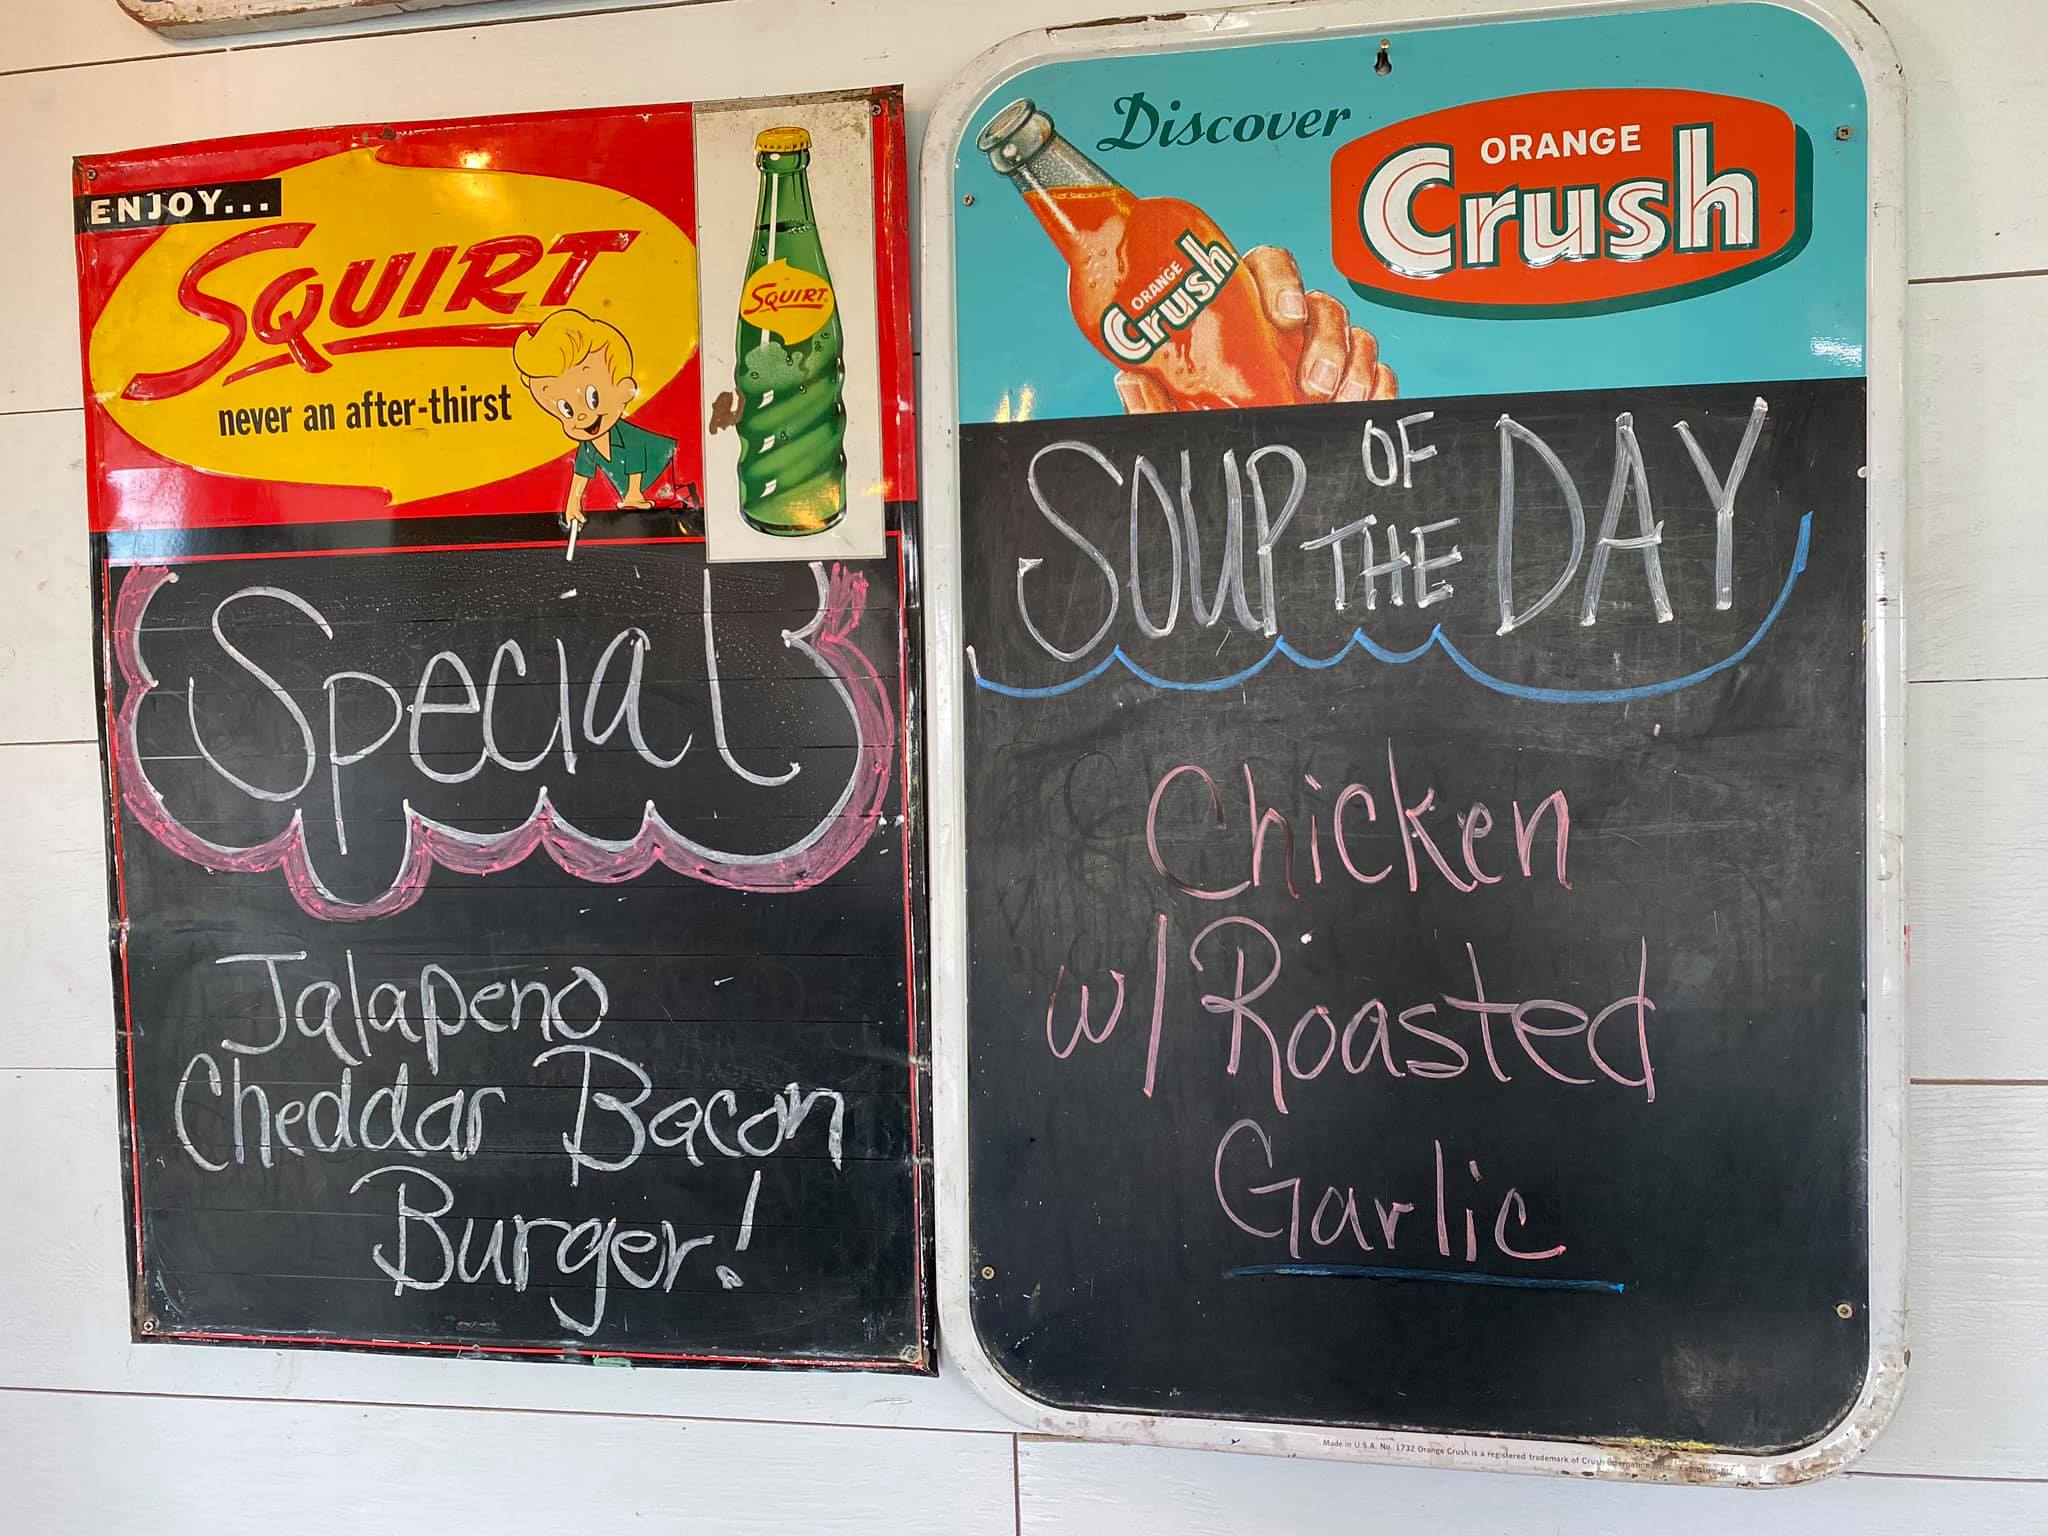 ENJOY...
SQUIRT
never an after-thirst
SQUIRT
Special
Jalapeno
Cheddar Bacon
Burger!
Discover
ORANGE
Crush
ORANGE
Crush
SOUP OF THE DAY
Chicken
w/ Roasted
Garlic
Made in U.S.A. No. 1732 Orange Crush is a registered trademark of Crush